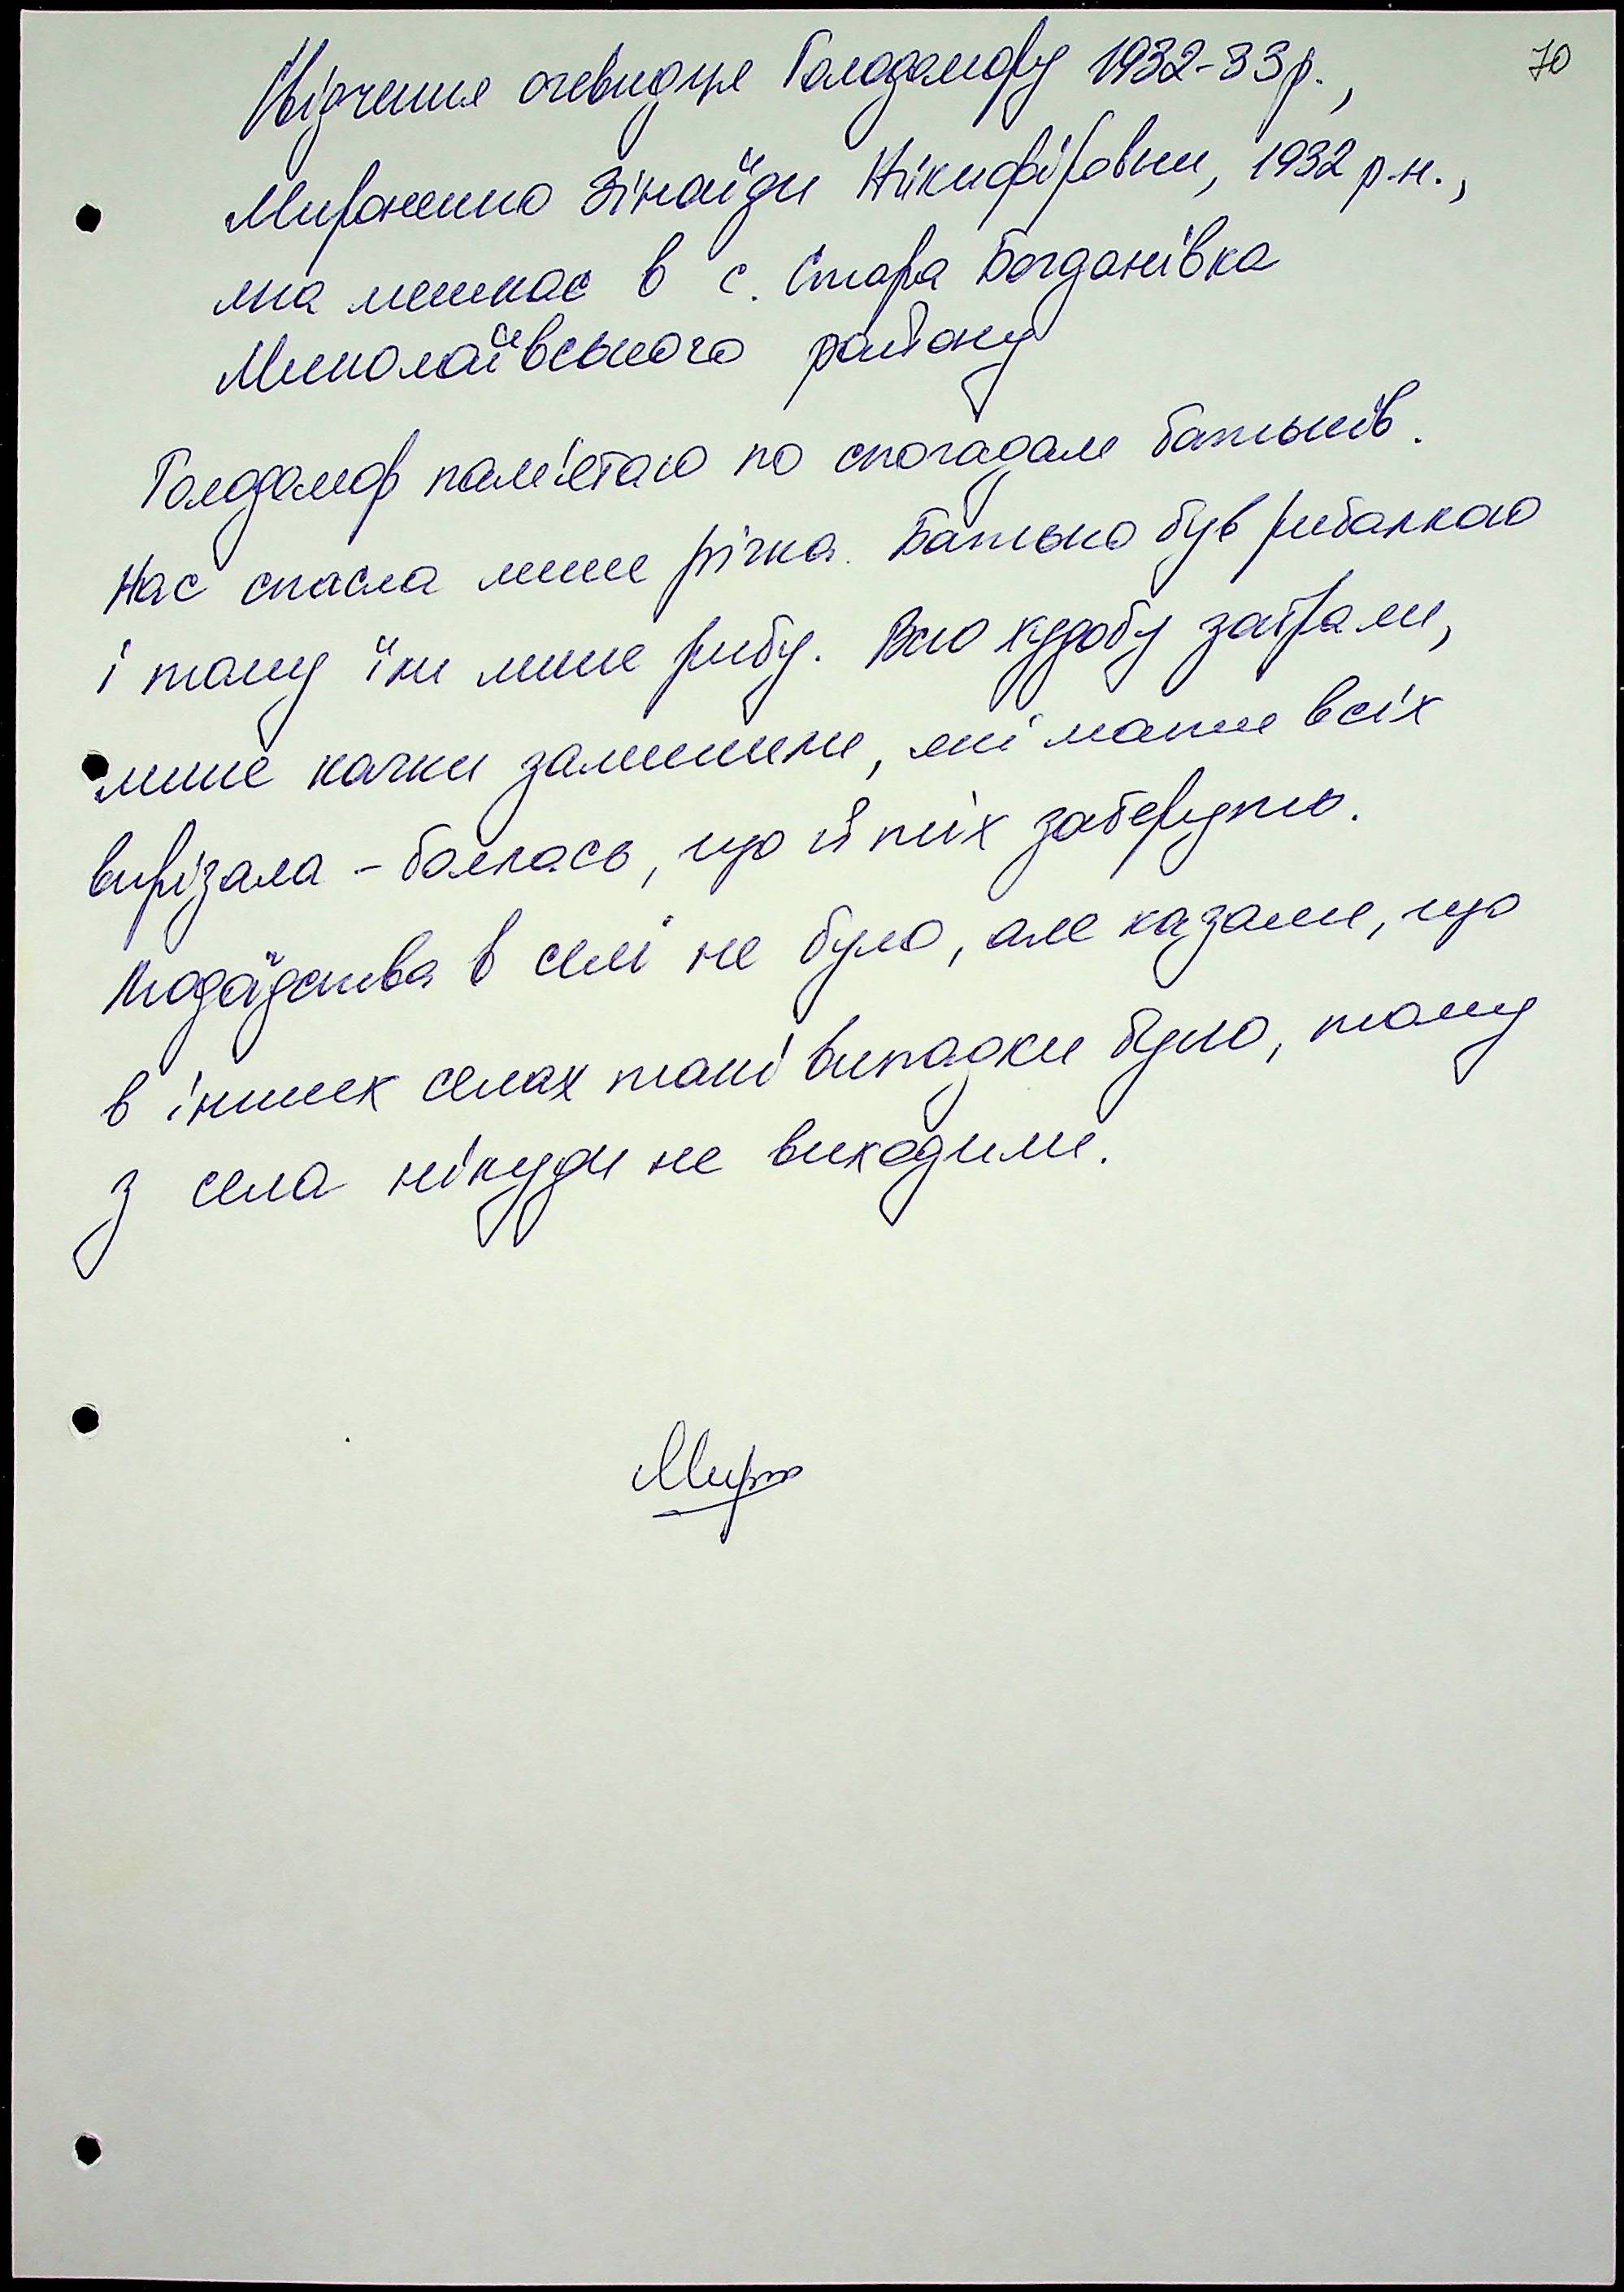 70
Свідчення очевидця Голодомору 1932-33р.,
Мироненко Зінаїди Нікифоровни, 1932 р.н.,
яка мешкає в с. Стара Богданівка
Миколаївського району
Голодомор пам'ятаю по спогадам батьків.
Нас спасла лише річка. Батько був рибалкою
і тому їли лише рибу. Всю худобу забрали,
лише качки залишили, які мати всіх
вирізала - боялась, що й тих заберуть.
Людоїдства в селі не було, але казали, що
в інших селах такі випадки було, тому
з села нікуди не виходили.